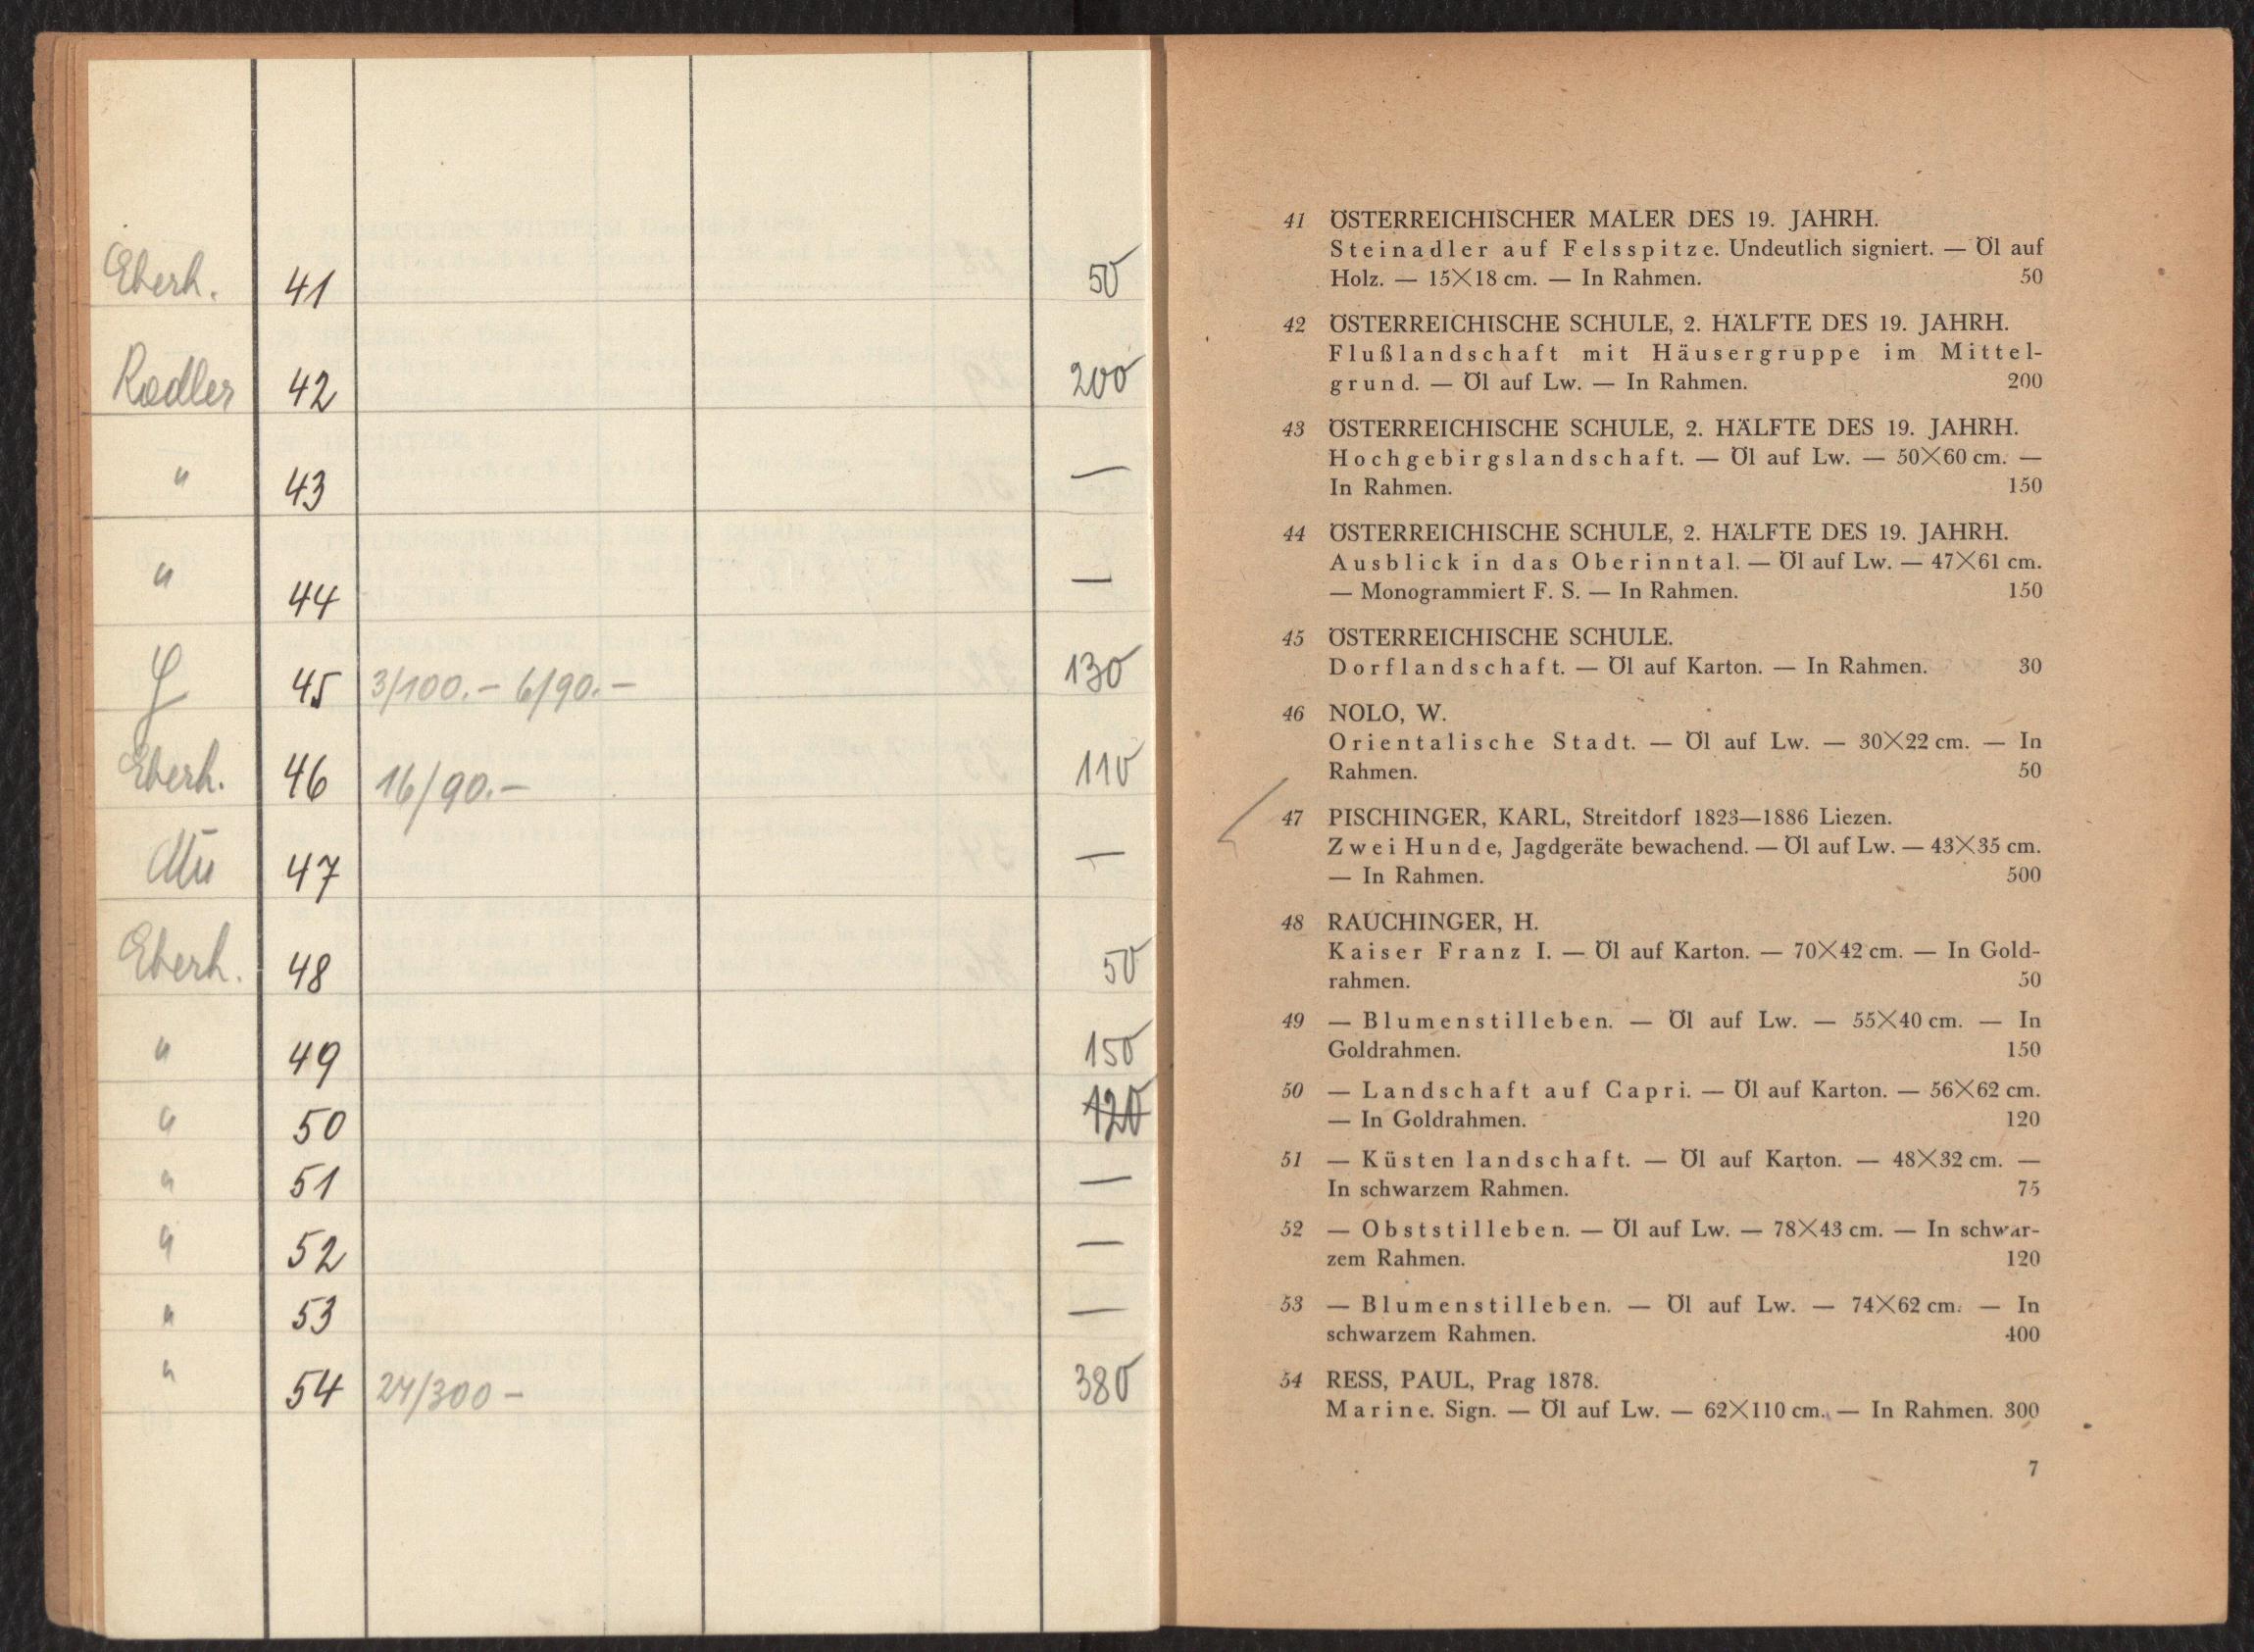 Eberh. 41 50
Radler 42 200
" 43 —
" 44 —
45 3/100.- 6/90.- 130
Eberh. 46 16/90.- 110
47 —
Eberh. 48 50
" 49 150
" 50 120
" 51 —
" 52 —
" 53 —
" 54 27/300 - 380
41 ÖSTERREICHISCHER MALER DES 19. JAHRH.
Steinadler auf Felsspitze. Undeutlich signiert. — Öl auf
Holz. — 15×18 cm. — In Rahmen. 50
42 ÖSTERREICHISCHE SCHULE, 2. HÄLFTE DES 19. JAHRH.
Flußlandschaft mit Häusergruppe im Mittel-
grund. — Öl auf Lw. — In Rahmen. 200
43 ÖSTERREICHISCHE SCHULE, 2. HÄLFTE DES 19. JAHRH.
Hochgebirgslandschaft. — Öl auf Lw. — 50×60 cm. —
In Rahmen. 150
44 ÖSTERREICHISCHE SCHULE, 2. HÄLFTE DES 19. JAHRH.
Ausblick in das Oberinntal. — Öl auf Lw. — 47×61 cm.
— Monogrammiert F. S. — In Rahmen. 150
45 ÖSTERREICHISCHE SCHULE.
Dorflandschaft. — Öl auf Karton. — In Rahmen. 30
46 NOLO, W.
Orientalische Stadt. — Öl auf Lw. — 30×22 cm. — In
Rahmen. 50
47 PISCHINGER, KARL, Streitdorf 1823—1886 Liezen.
Zwei Hunde, Jagdgeräte bewachend. — Öl auf Lw. — 43×35 cm.
— In Rahmen. 500
48 RAUCHINGER, H.
Kaiser Franz I. — Öl auf Karton. — 70×42 cm. — In Gold-
rahmen. 50
49 — Blumenstilleben. — Öl auf Lw. — 55×40 cm. — In
Goldrahmen. 150
50 — Landschaft auf Capri. — Öl auf Karton. — 56×62 cm.
— In Goldrahmen. 120
51 — Küstenlandschaft. — Öl auf Karton. — 48×32 cm. —
In schwarzem Rahmen. 75
52 — Obststilleben. — Öl auf Lw. — 78×43 cm. — In schwar-
zem Rahmen. 120
53 — Blumenstilleben. — Öl auf Lw. — 74×62 cm. — In
schwarzem Rahmen. 400
54 RESS, PAUL, Prag 1878.
Marine. Sign. — Öl auf Lw. — 62×110 cm. — In Rahmen. 300
7